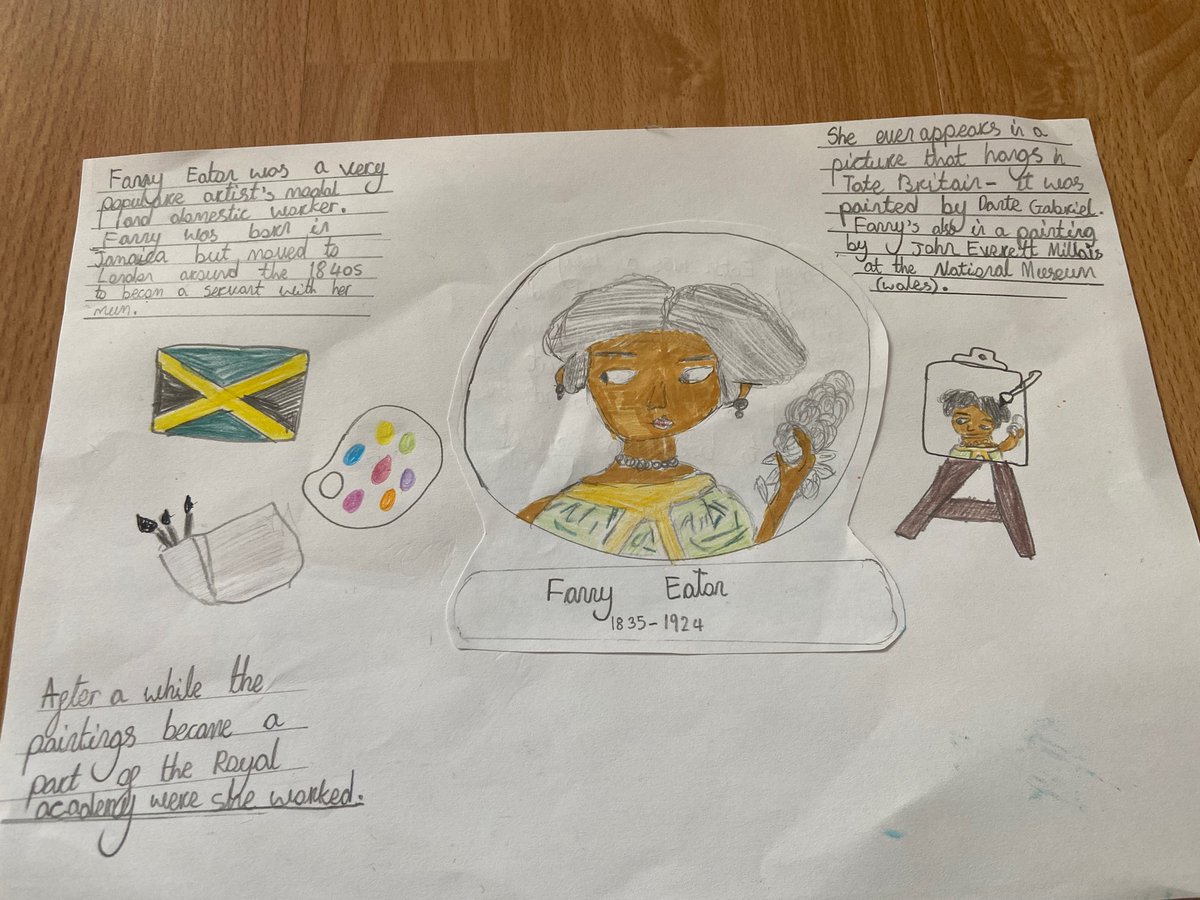 Fanny Eaton was a very
populare artist's modal
and domestic worker.
Fanny was born in
Jamaica but moved to
London around the 1840s
to becom a servant with her
mum.
She even appears in a
picture that hangs in
Tate Britain - it was
painted by Dante Gabriel.
Fanny's also in a painting
by John Everett Millais
at the National Museum
(wales).
Fanny Eaton
1835-1924
After a while the
paintings became a
part of the Royal
academy were she worked.